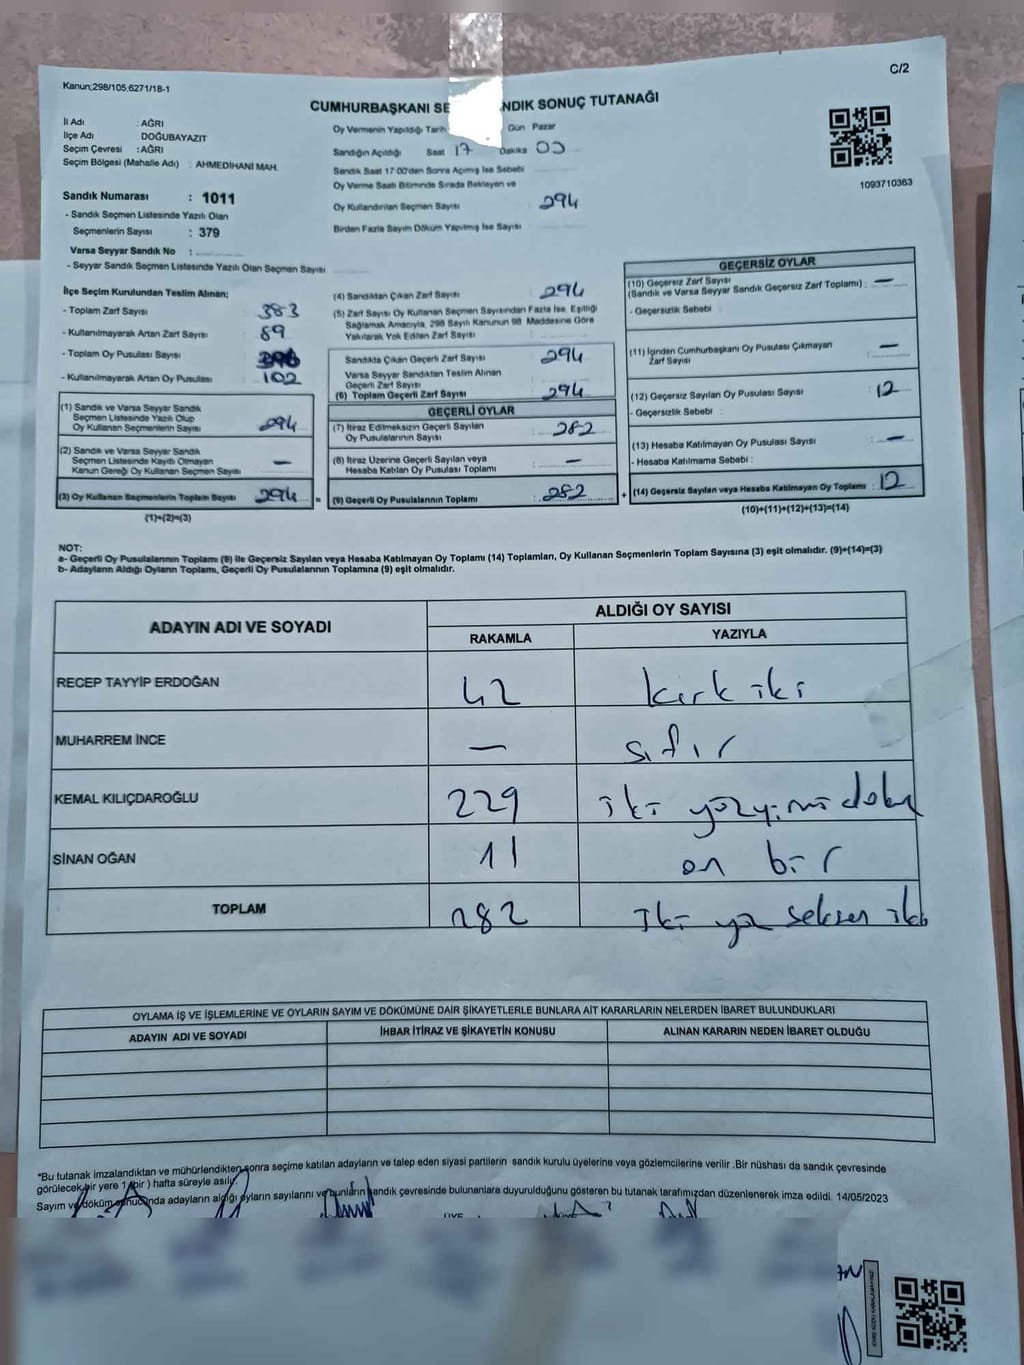 C/2
Kanun;298/105,6271/18-1
CUMHURBAŞKANI SE NDIK SONUÇ TUTANAĞI
İl Adı : AĞRI
İlçe Adı : DOĞUBAYAZIT
Seçim Çevresi : AĞRI
Seçim Bölgesi (Mahalle Adı) : AHMEDİHANİ MAH.
Sandık Numarası : 1011
- Sandık Seçmen Listesinde Yazılı Olan
Seçmenlerin Sayısı : 379
Varsa Seyyar Sandık No :
- Seyyar Sandık Seçmen Listesinde Yazılı Olan Seçmen Sayısı
Oy Vermenin Yapıldığı Tarih Gün Pazar
Sandığın Açıldığı Saat 17 Dakika 00
Sandık Saat 17:00'den Sonra Açımış İse Sebebi
Oy Verme Saati Bitiminde Sırada Bekleyen ve
Oy Kullandırılan Seçmen Sayısı 294
Birden Fazla Sayım Döküm Yapılmış İse Sayısı
1093710363
İlçe Seçim Kurulundan Teslim Alınan;
- Toplam Zarf Sayısı 383
- Kullanılmayarak Artan Zarf Sayısı 89
- Toplam Oy Pusulası Sayısı
- Kullanılmayarak Artan Oy Pusulası 102
(1) Sandık ve Varsa Seyyar Sandık
Seçmen Listesinde Yazılı Olup
Oy Kullanan Seçmenlerin Sayısı 294
(2) Sandık ve Varsa Seyyar Sandık
Seçmen Listesinde Kayıtlı Olmayan
Kanun Gereği Oy Kullanan Seçmen Sayısı —
(3) Oy Kullanan Seçmenlerin Toplam Sayısı 294 =
(1)+(2)=(3)
(4) Sandıktan Çıkan Zarf Sayısı 294
(5) Zarf Sayısı Oy Kullanan Seçmen Sayısından Fazla İse, Eşitliği
Sağlamak Amacıyla, 298 Sayılı Kanunun 98 Maddesine Göre
Yakılarak Yok Edilen Zarf Sayısı
Sandıkta Çıkan Geçerli Zarf Sayısı 294
Varsa Seyyar Sandıktan Teslim Alınan
Geçerli Zarf Sayısı
(6) Toplam Geçerli Zarf Sayısı 294
GEÇERLİ OYLAR
(7) İtiraz Edilmeksizin Geçerli Sayılan
Oy Pusulalarının Sayısı 282
(8) İtiraz Üzerine Geçerli Sayılan veya
Hesaba Katılan Oy Pusulası Toplamı : —
(9) Geçerli Oy Pusulalarının Toplamı : 282 +
GEÇERSİZ OYLAR
(10) Geçersiz Zarf Sayısı
(Sandık ve Varsa Seyyar Sandık Geçersiz Zarf Toplamı) : —
- Geçersizlik Sebebi :
(11) İçinden Cumhurbaşkanı Oy Pusulası Çıkmayan
Zarf Sayısı : —
(12) Geçersiz Sayılan Oy Pusulası Sayısı 12
- Geçersizlik Sebebi :
(13) Hesaba Katılmayan Oy Pusulası Sayısı —
- Hesaba Katılmama Sebebi :
(14) Geçersiz Sayılan veya Hesaba Katılmayan Oy Toplamı : 12
(10)+(11)+(12)+(13)=(14)
NOT:
a- Geçerli Oy Pusulalarının Toplamı (9) ile Geçersiz Sayılan veya Hesaba Katılmayan Oy Toplamı (14) Toplamları, Oy Kullanan Seçmenlerin Toplam Sayısına (3) eşit olmalıdır. (9)+(14)=(3)
b- Adayların Aldığı Oyların Toplamı, Geçerli Oy Pusulalarının Toplamına (9) eşit olmalıdır.
ADAYIN ADI VE SOYADI
ALDIĞI OY SAYISI
RAKAMLA YAZIYLA
RECEP TAYYİP ERDOĞAN 42 kırk iki
MUHARREM İNCE — sıfır
KEMAL KILIÇDAROĞLU 229 iki yüz yirmi doku
SİNAN OĞAN 11 on bir
TOPLAM 282 iki yüz seksen iki
OYLAMA İŞ VE İŞLEMLERİNE VE OYLARIN SAYIM VE DÖKÜMÜNE DAİR ŞİKAYETLERLE BUNLARA AİT KARARLARIN NELERDEN İBARET BULUNDUKLARI
ADAYIN ADI VE SOYADI İHBAR İTİRAZ VE ŞİKAYETİN KONUSU ALINAN KARARIN NEDEN İBARET OLDUĞU
*Bu tutanak imzalandıktan ve mühürlendikten sonra seçime katılan adayların ve talep eden siyasi partilerin sandık kurulu üyelerine veya gözlemcilerine verilir .Bir nüshası da sandık çevresinde
görülecek bir yere 1 (bir ) hafta süreyle asılır.
Sayım ve döküm sonucunda adayların aldığı oyların sayılarını ve bunların sandık çevresinde bulunanlara duyurulduğunu gösteren bu tutanak tarafımızdan düzenlenerek imza edildi. 14/05/2023